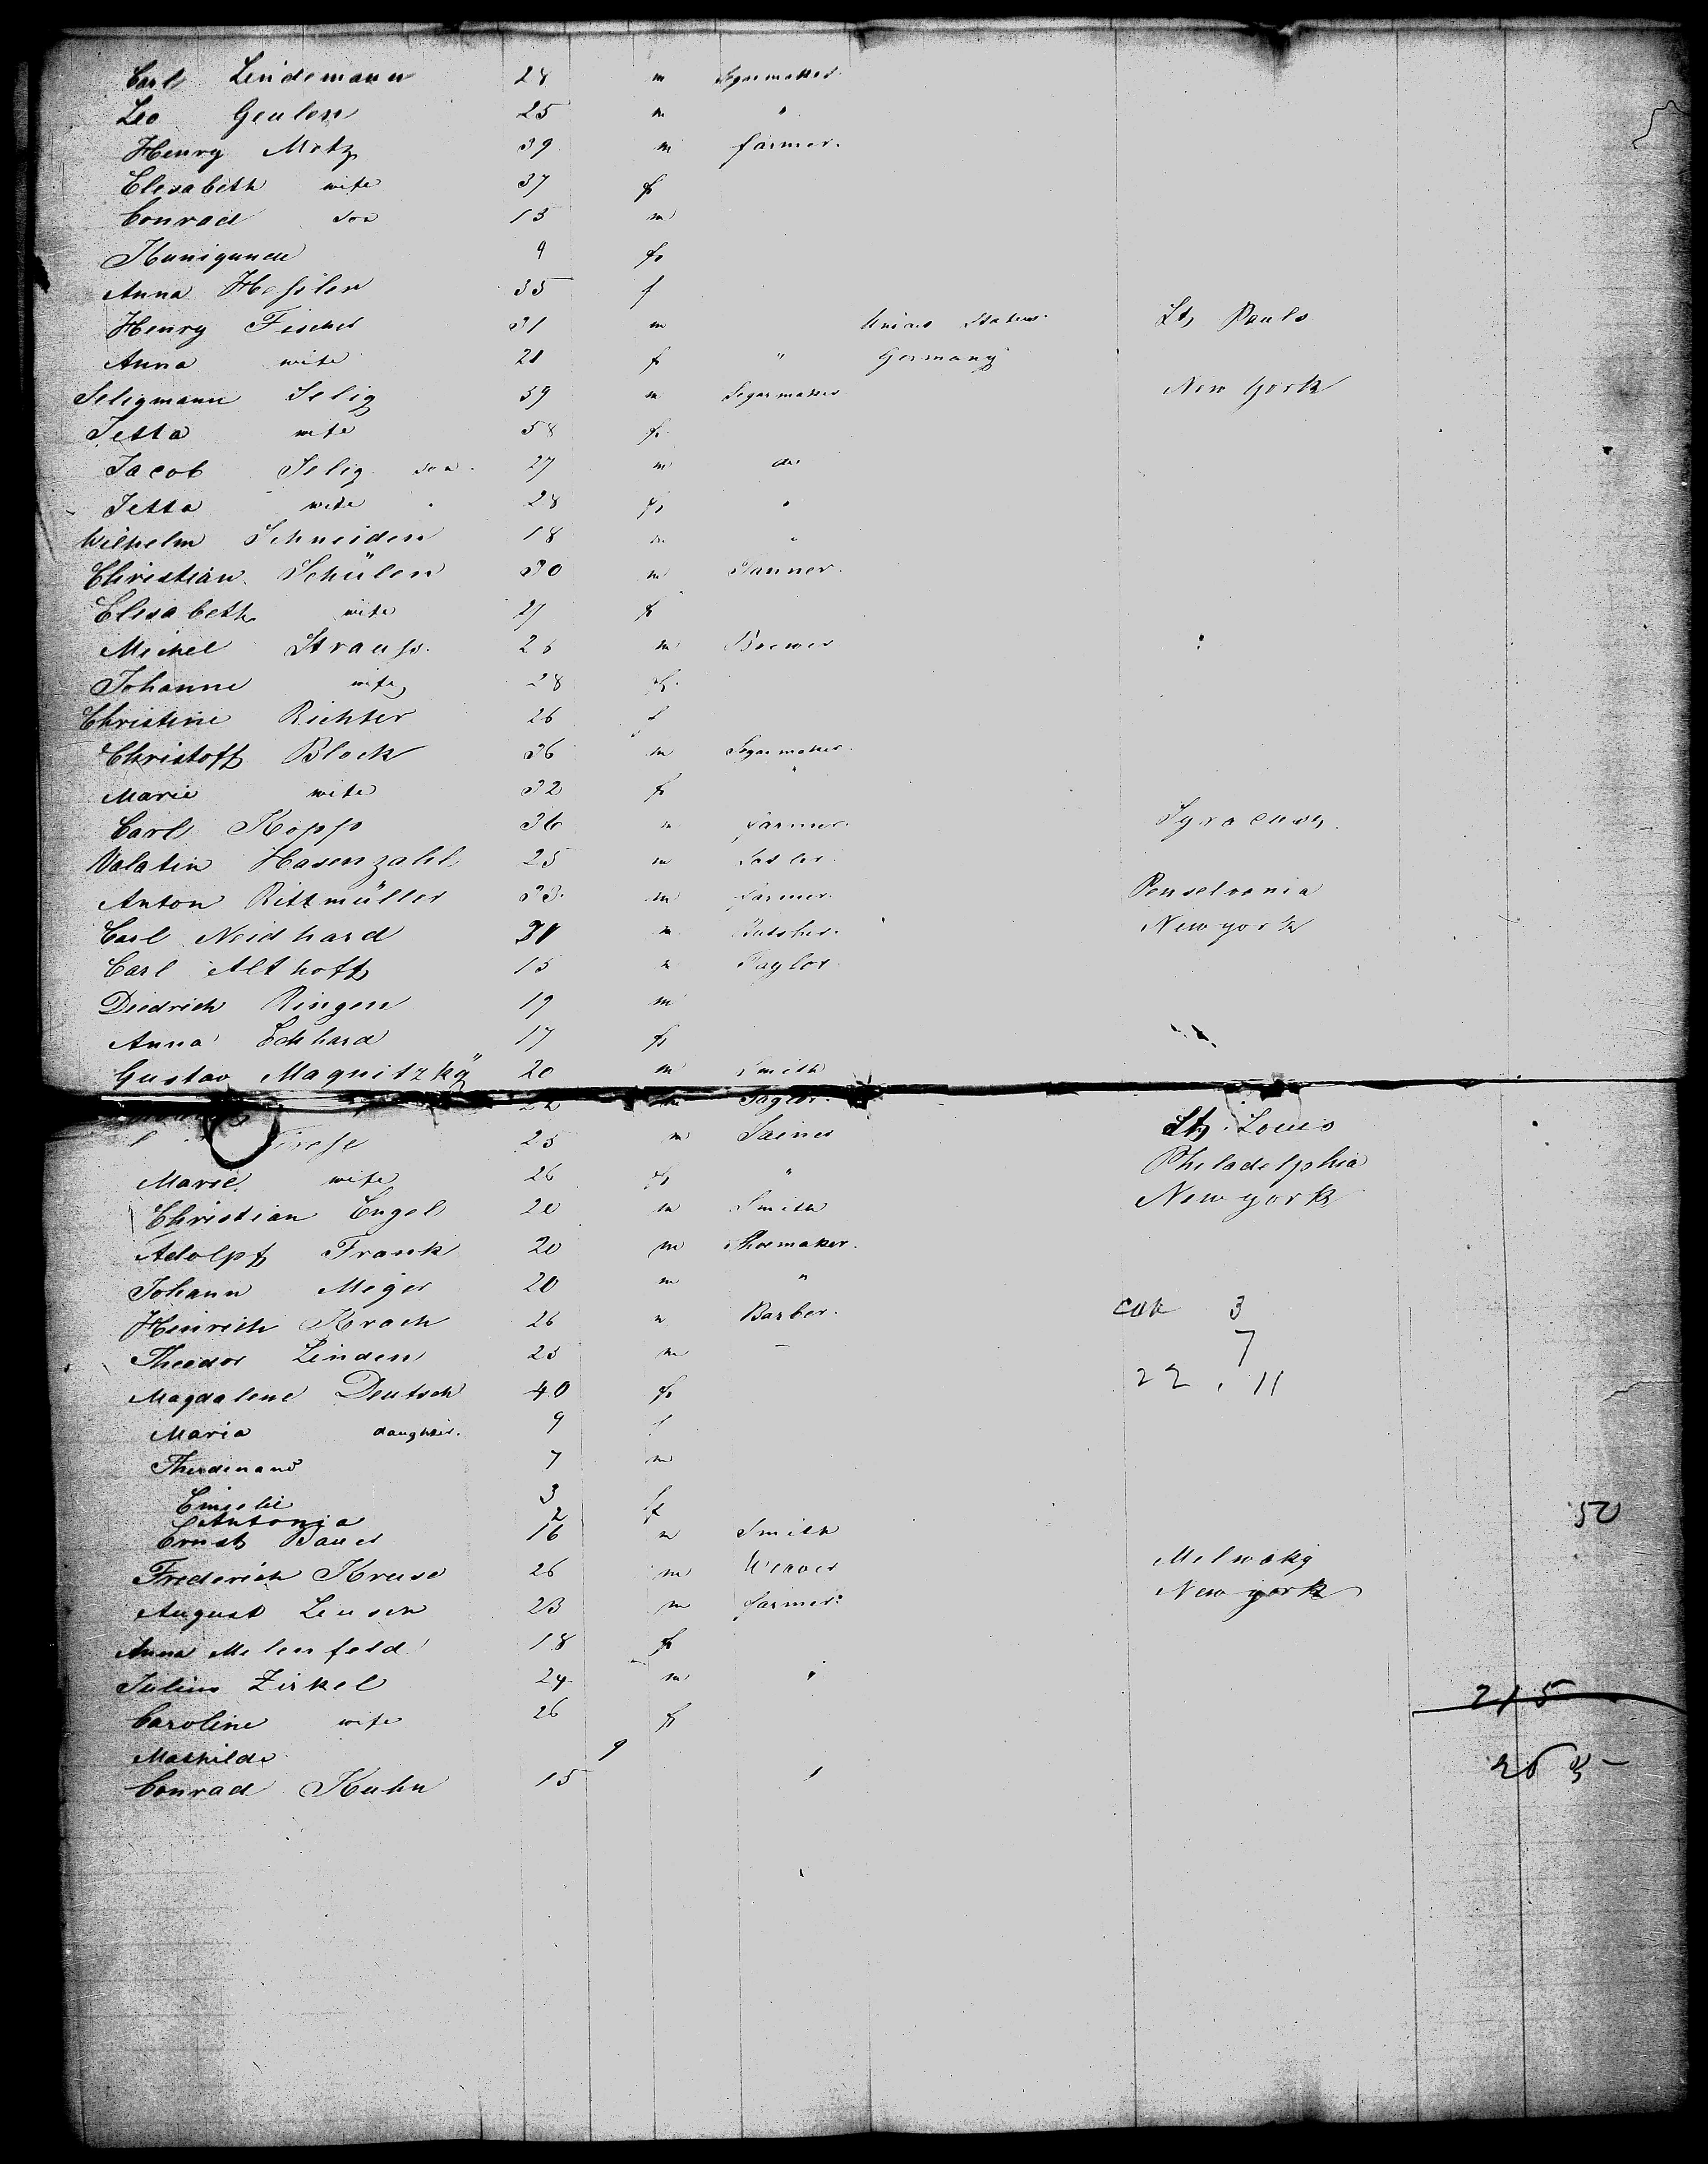 Carl Lindemann 28 m Segarmaker
Leo Geulen 25 m "
Henry Motz 39 m farmer.
Elisabeth wife 37 f
Conrad son 15 m
Kunigunde 9 f
Anna Heßler 35 f
Henry Fischer 31 m Unied States St, Pauls
Anna wife 21 f " Germany
Seligmann Selig 59 m Segarmaker New York
Jetta wife 58 f
Jacob Selig son 27 m do
Jetta wife 28 f "
Wilhelm Schneider 18 m "
Christian Schülen 30 m Tanner.
Elisabeth wife 27 f
Michel Strauß. 26 m Brewer
Johanne wife 28 f.
Christine Richter 26 f
Christoff Block 36 m Segarmaker.
Marie wife 32 f "
Carl Kopp 36 m farmer. Syracuse
Valatin Hasenzahl 25 m
Anton Rittmüller 33. m farmer. Penselvania
Carl Neidhard 31 m Butsher. New york
Carl Althoff 15 m Taylor
Diedrich Ringen 19 m
Anna Eckhard 17 f
Gustav Magnitzky 20 m Smith
22 m Taylor.
25 m St, Louis
Marie wife 26 f " Philadelphia
Christian Engel 20 m Smith New york
Adolpf Frank 20 m Shoemaker.
Johann Meger 20 m "
Heinrich Krach 26 m Barber. 3
Theodor Linden 25 m – 7
Magdalene Deutsch 40 f 22 . 11
Maria daughter. 9 f
Therdinand 7 m
Emelie 3 f
Antonia 2 f
Ernst Bauer 16 m Smith 50
Frederich Kruse 26 m Weaver Melwaky
August Leusen 23 m farmer. New york
Anna Melenfeld 18 f
Julius Zirkel 24 m " 215
Caroline wife 26 f
Mathilde 9
Conrad Kuhn 15 "